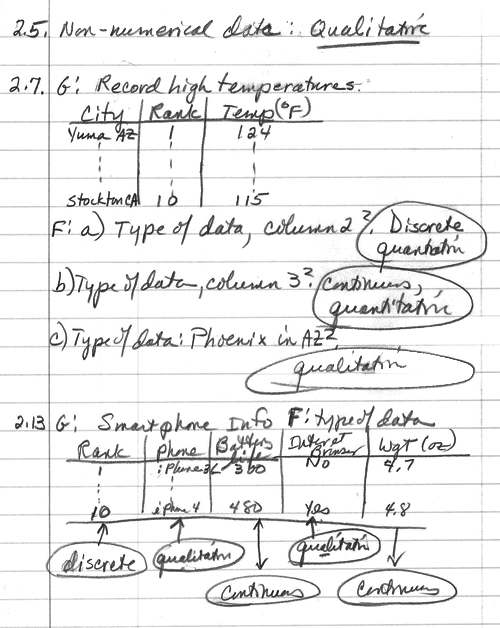 2.5. Non-numerical data: Qualitative
2.7. G: Record high temperatures.
City Rank Temp(°F)
Yuma AZ 1 124
Stockton CA 10 115
F: a) Type of data, column 2? Discrete
quantitative
b) Type of data, column 3? continuous,
quantitative
c) Type of data: Phoenix in AZ?
qualitative
2.13 G: Smartphone Info F: type of data
Rank Phone Battery Life Internet Browser Wgt (oz)
1 iPhone 3G 300 No 4.7
10 iPhone 4 480 Yes 4.8
discrete qualitative qualitative
continuous continuous